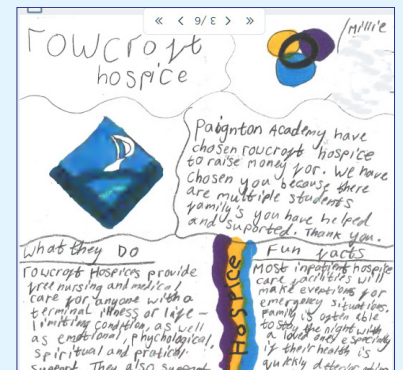 « < 9/3 > »
rowcroft
hospice
Millie
Paignton Academy have
chosen roucroft hospice
to raise money for. We have
chosen you because there
are multiple students
family's you have helped
and suported. Thank you.
What they Do
rowcroft Hospices provide
free nursing and medical
care for anyone with a
terminal illness or life-
limitting condition, as well
as emotional, phychological,
spiritual and pratical
support. They also support
Hospice
Fun facts
Most inpatient hospice
care facilities will
make eveptions for
emergency situations.
Family is often able
to stay the night with
a loved one, especially
if their health is
quickly deteriorating